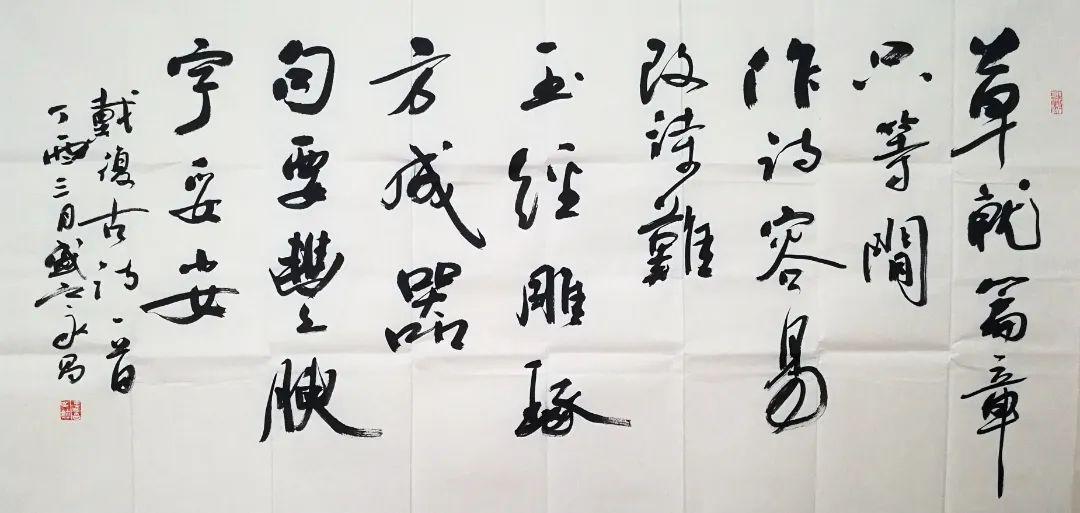 草就篇章
只等間
作诗容易
改詩難
玉經雕琢
方成器
句要豐腴
字妥安
戴復古诗一首
丁酉三月盛